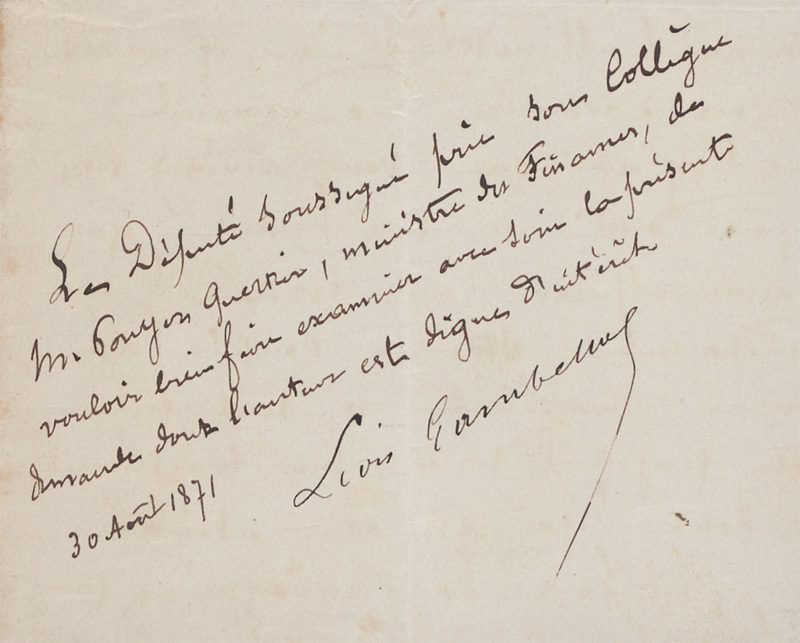 Le Député soussigné prie son Collègue
Mr Pouyer Quertier, ministre des Finances, de
vouloir bien faire examiner avec soin la présente
demande dont l'auteur est digne d'intérêt.
Léon Gambetta
30 Août 1871